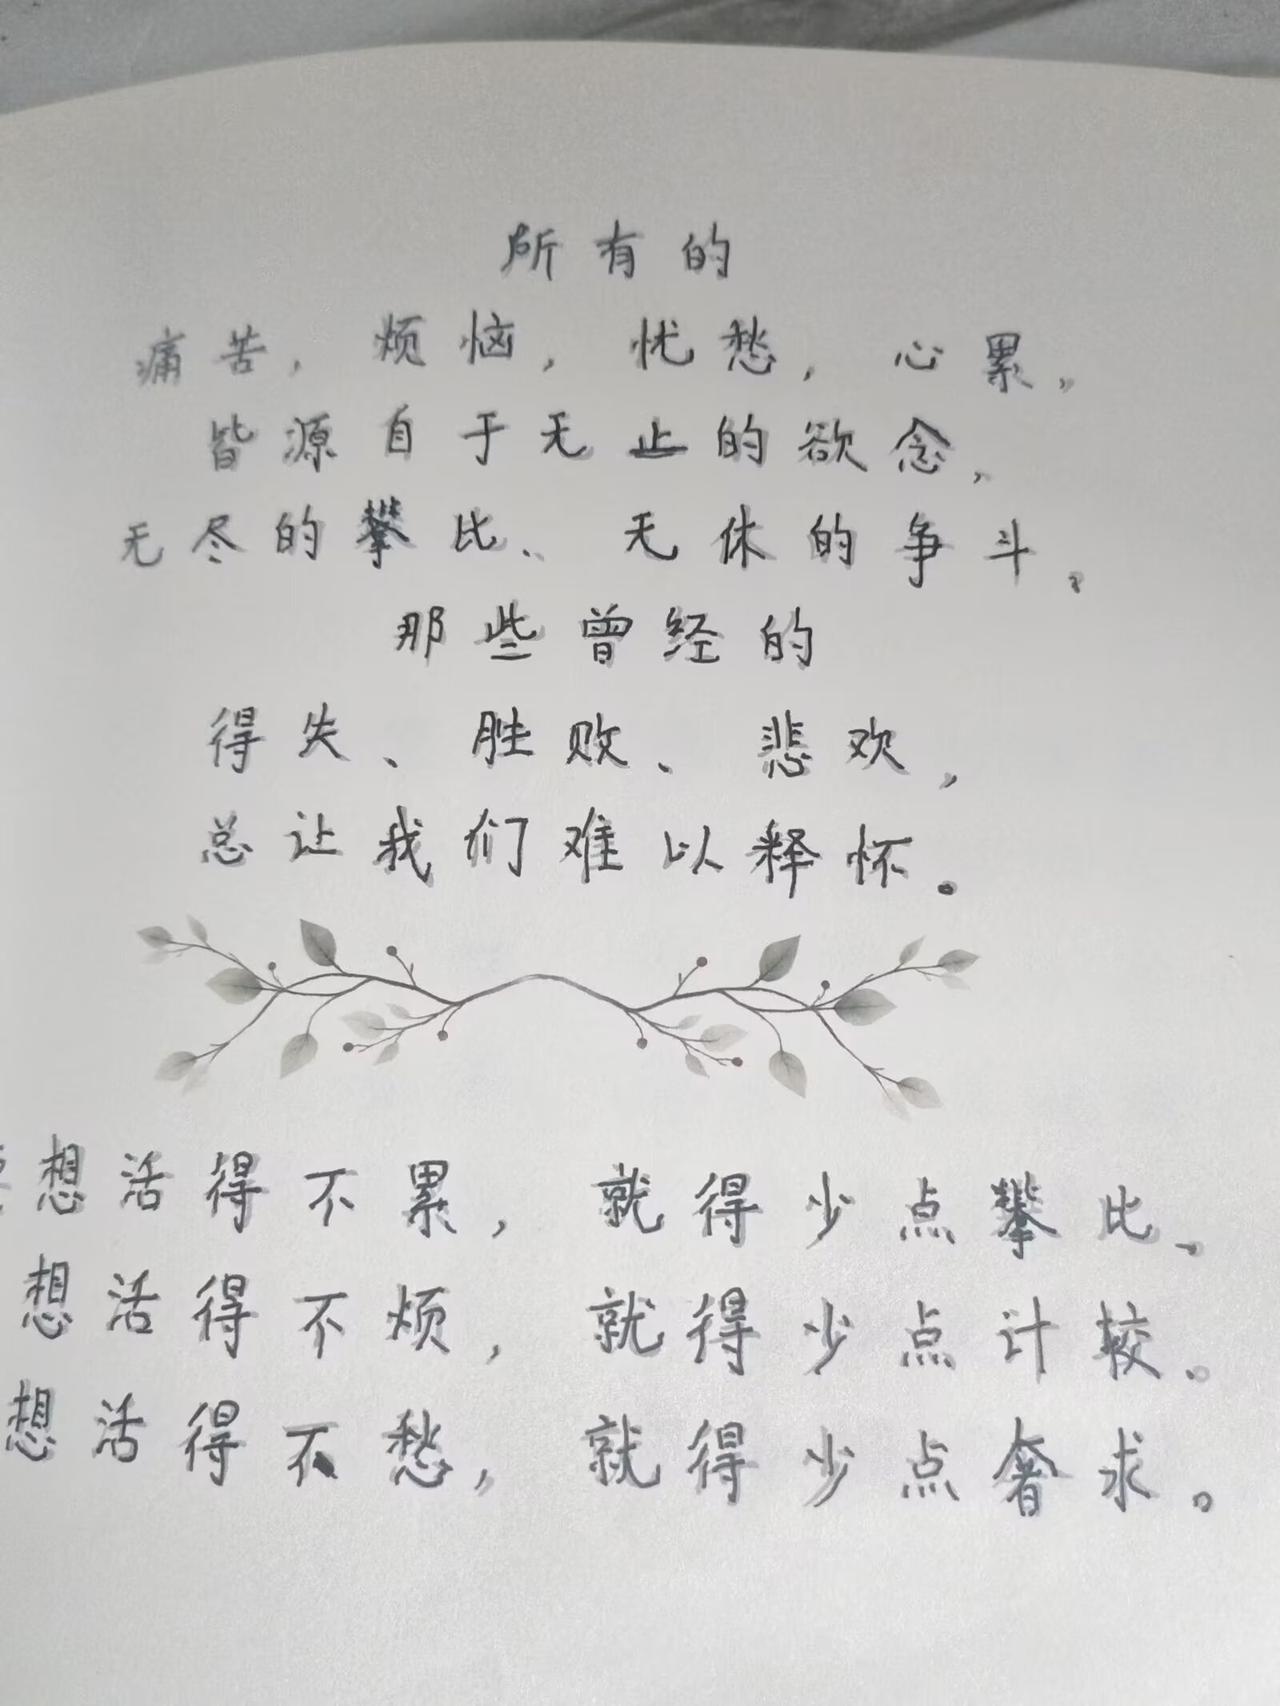 所有的
痛苦，烦恼，忧愁，心累，
皆源自于无止的欲念，
无尽的攀比、无休的争斗。
那些曾经的
得失、胜败、悲欢，
总让我们难以释怀。
想活得不累，就得少点攀比、
想活得不烦，就得少点计较。
想活得不愁，就得少点奢求。